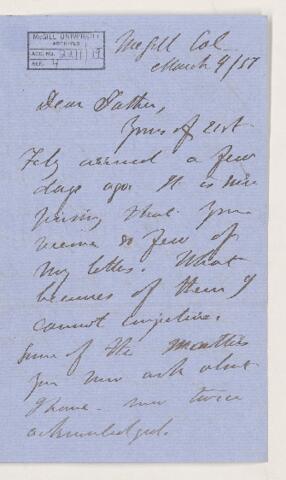 McGILL UNIVERSITY
ARCHIVES
ACC. NO.
REF. 4
McGill Col
March 9/57
Dear Father,
Yours of 21st
Feby arrived a few
days ago. It is sur
prising that you
receive so few of
my letters. What
becomes of them I
cannot conjecture.
Some of the matters
you now ask about
I have now twice
acknowledged.